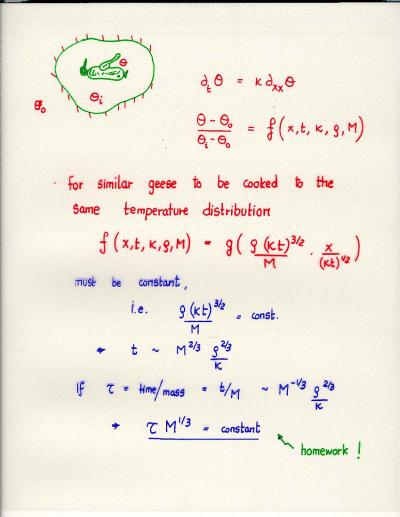 θ
θᵢ
θ₀
∂ₜθ = κ ∂ₓₓθ
(θ - θ₀)/(θᵢ - θ₀) = f(x,t,κ,ρ,M)
· for similar geese to be cooked to the
same temperature distribution
f(x,t,κ,ρ,M) = g( ρ(κt)^{3/2}/M · x/(κt)^{1/2} )
must be constant,
i.e. ρ(κt)^{3/2}/M = const.
→ t ~ M^{2/3} ρ^{2/3}/κ
If τ = time/mass = t/M ~ M^{-1/3} ρ^{2/3}/κ
→ τ M^{1/3} = constant
homework !